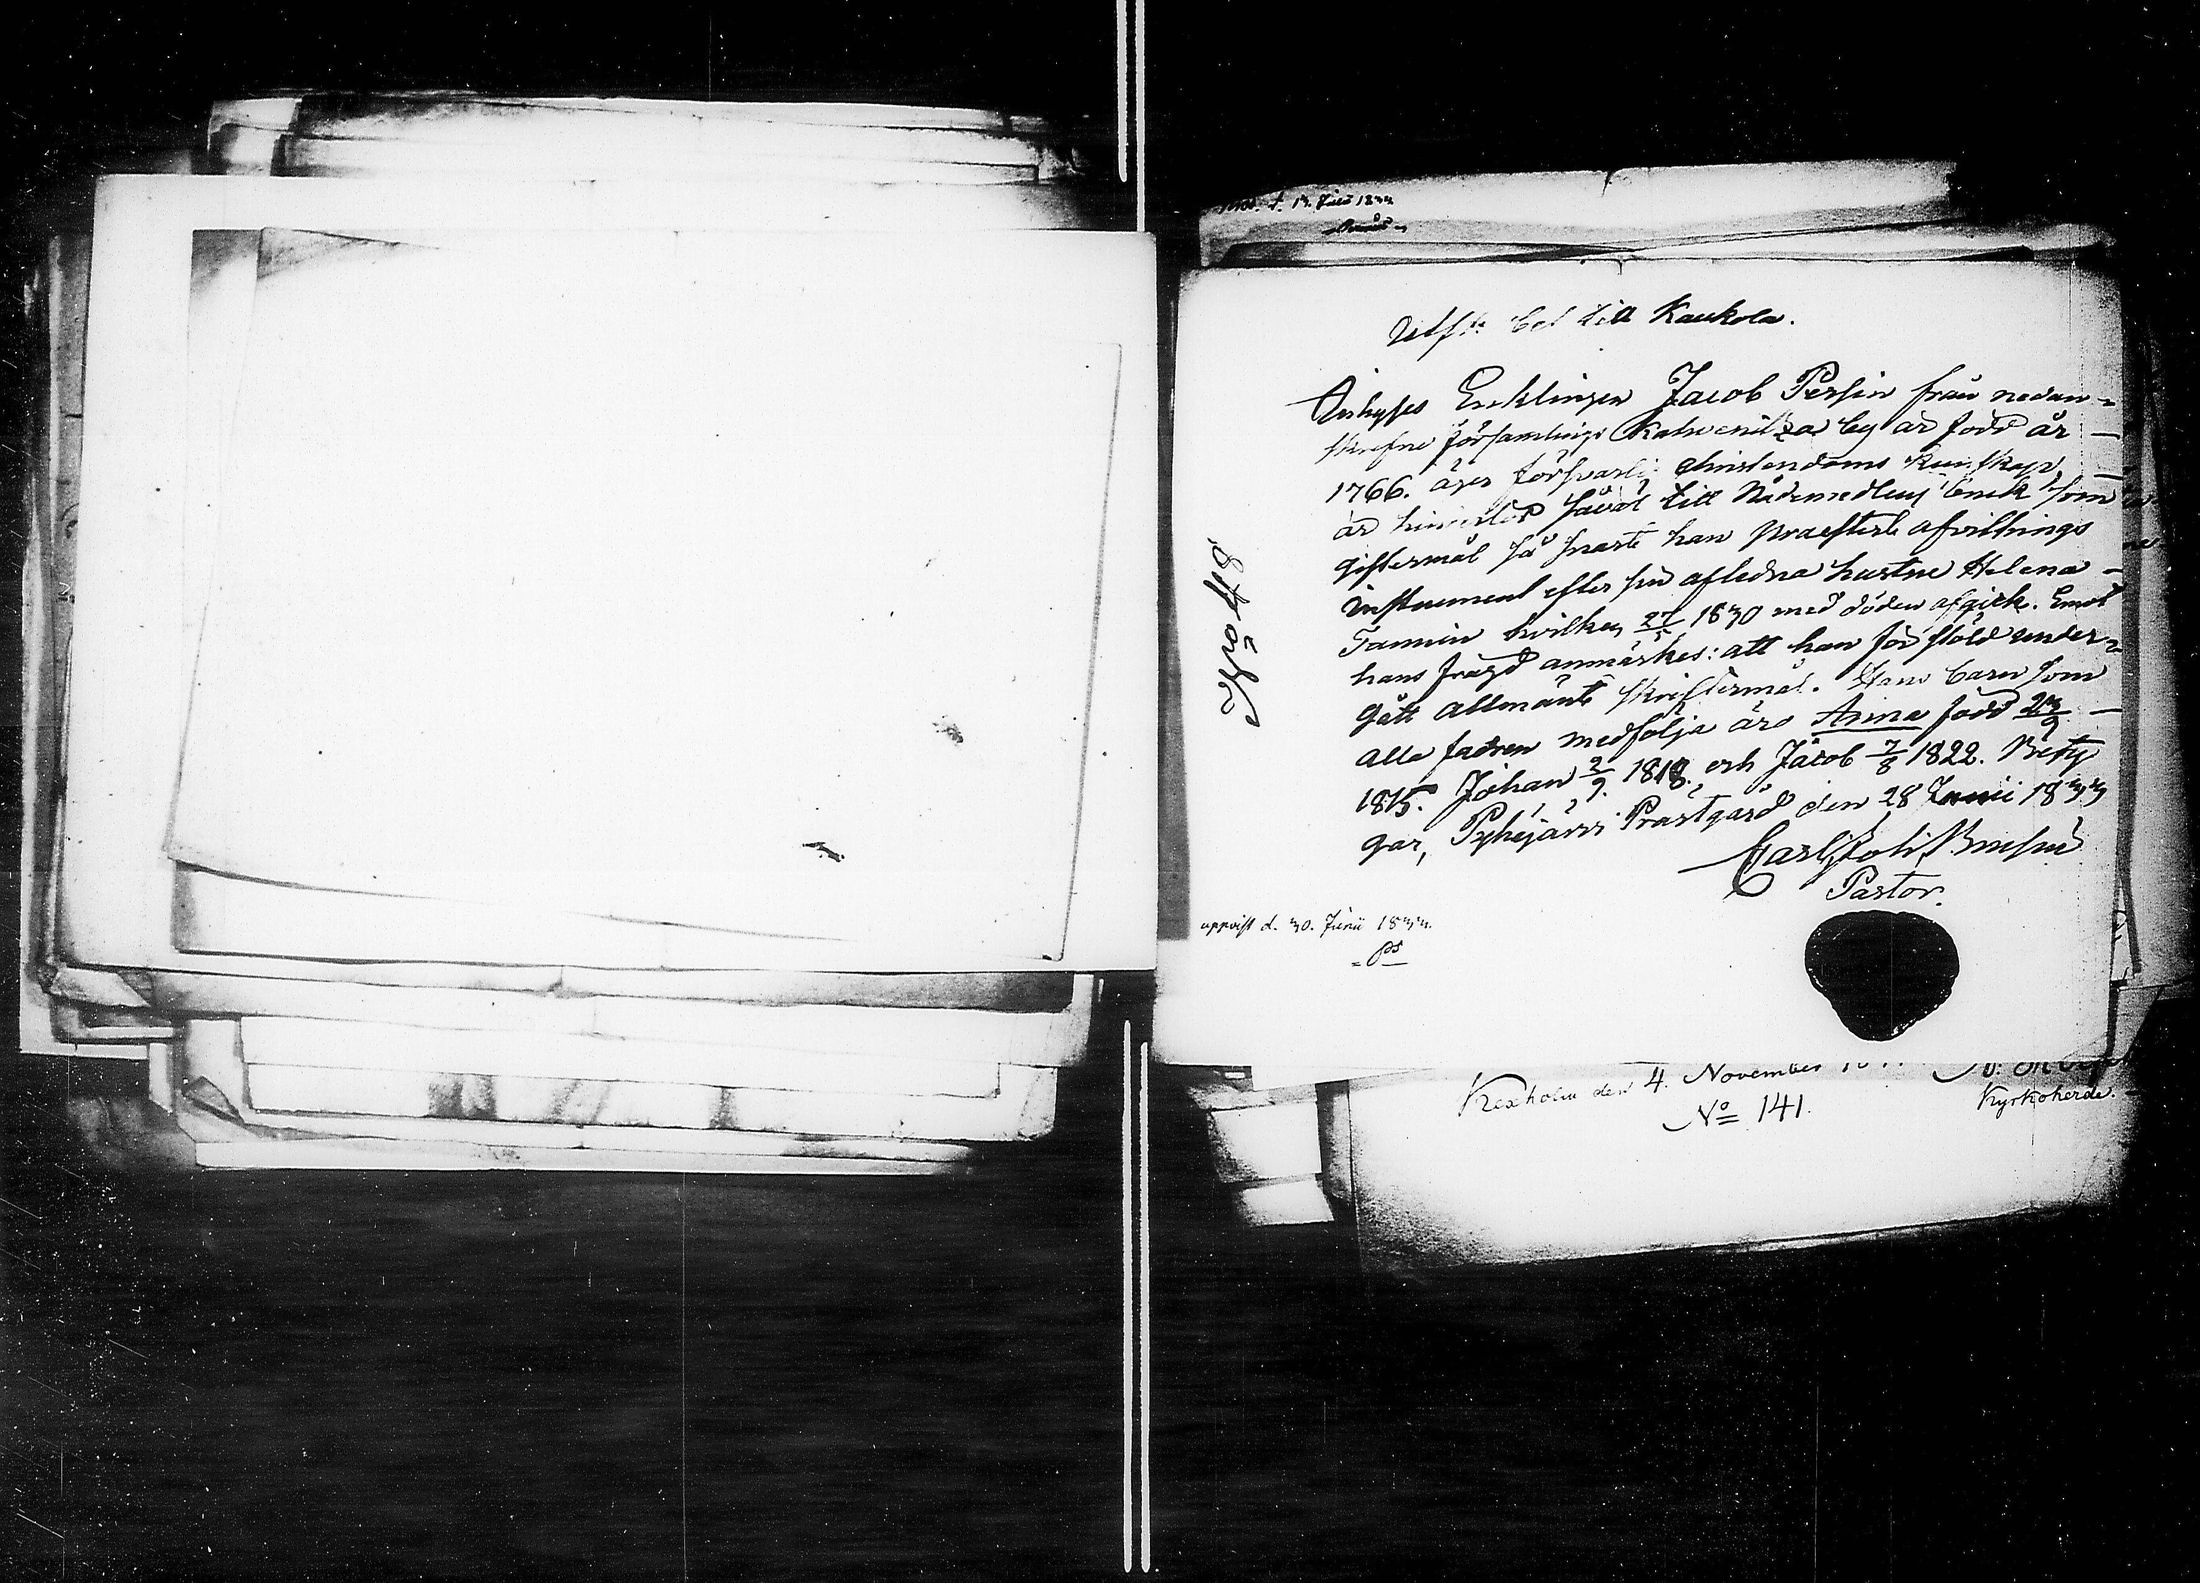 d. 13. Julii 1833
till Kaukola.
Inhyses Enklingen Jacob Persin från nedan=
skrefne församlings Kalwenitza by är född år
1766. äger försvarlig christendoms kunskap,
är hinderlös såväl till Nådemedlens bruk som
giftermål så snart han præsterat afvittrings
instrument efter sin afledna hustru Helena
Tammin hvilken 27/5 1830 med döden afgick. Emot
hans frägd anmärkes: att han för stöld under=
gått allmänt skriftermål. Hans barn som
alla fadren medfölja äro Anna född 23/9
1815. Johan 2/9. 1818. och Jacob 7/8 1822. Bety
gar, Pyhäjärvi Prästgård den 28 Junii 1833
Pastor.
No 48
uppvist d. 30. Junii 1833.
Kexholm den 4. November
Kyrkoherde.
No 141.